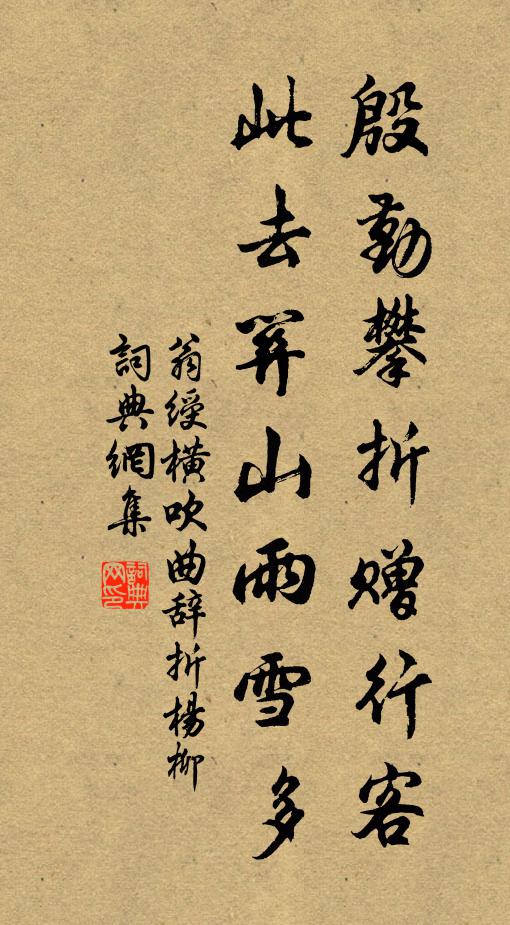 殷勤攀折赠行客
此去关山雨雪多
翁绶横吹曲辞折杨柳
詞典網集
詞典网印